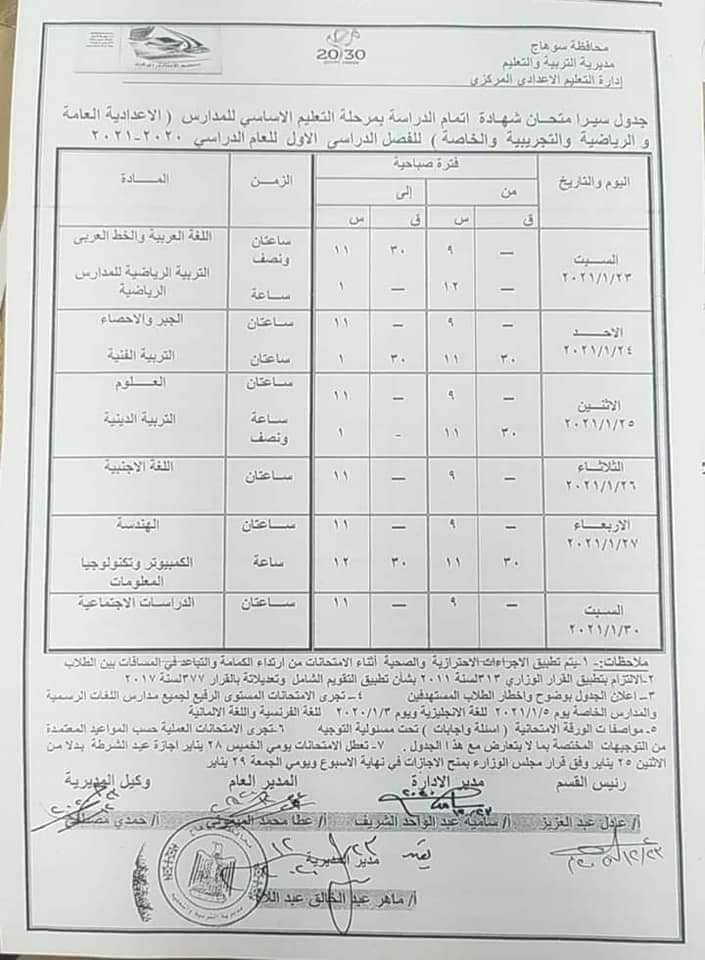 محافظة سوهاج
مديرية التربية والتعليم
إدارة التعليم الاعدادى المركزى
2030
جدول سير امتحان شهادة اتمام الدراسة بمرحلة التعليم الاساسي للمدارس ( الاعدادية العامة
و الرياضية والتجريبية والخاصة ) للفصل الدراسي الاول للعام الدراسي ٢٠٢٠-٢٠٢١
اليوم والتاريخ فترة صباحية الزمن المادة
من إلى
ق س ق س
السبت ٢٠٢١/١/٢٣ — ٩ ٣٠ ١١ ساعتان ونصف اللغة العربية والخط العربى
— ١٢ — ١ ساعة التربية الرياضية للمدارس الرياضية
الاحد ٢٠٢١/١/٢٤ — ٩ — ١١ ساعتان الجبر والاحصاء
٣٠ ١١ ٣٠ ١ ساعتان التربية الفنية
الاثنين ٢٠٢١/١/٢٥ — ٩ — ١١ ساعتان العلوم
٣٠ ١١ - ١ ساعة ونصف التربية الدينية
الثلاثاء ٢٠٢١/١/٢٦ — ٩ — ١١ ساعتان اللغة الاجنبية
الاربعاء ٢٠٢١/١/٢٧ — ٩ — ١١ ساعتان الهندسة
٣٠ ١١ ٣٠ ١٢ ساعة الكمبيوتر وتكنولوجيا المعلومات
السبت ٢٠٢١/١/٣٠ — ٩ — ١١ ساعتان الدراسات الاجتماعية
ملاحظات:- ١-يتم تطبيق الاجراءات الاحترازية والصحية أثناء الامتحانات من ارتداء الكمامة والتباعد في المسافات بين الطلاب
٢-الالتزام بتطبيق القرار الوزاري ٣١٣لسنة ٢٠١١ بشأن تطبيق التقويم الشامل وتعديلاتة بالقرار ٣٧٧لسنة ٢٠١٧
٣- اعلان الجدول بوضوح واخطار الطلاب المستهدفين ٤-تجرى الامتحانات المستوى الرفيع لجميع مدارس اللغات الرسمية
والمدارس الخاصة يوم ٢٠٢١/١/٥ للغة الانجليزية ويوم ٢٠٢٠/١/٣ للغة الفرنسية واللغة الالمانية
٥-مواصفات الورقة الامتحانية ( اسئلة واجابات ) تحت مسئولية التوجيه ٦-تجرى الامتحانات العملية حسب المواعيد المعتمدة
من التوجيهات المختصة بما لا يتعارض مع هذا الجدول . ٧- تعطل الامتحانات يومي الخميس ٢٨ يناير اجازة عيد الشرطة بدلا من
الاثنين ٢٥ يناير وفق قرار مجلس الوزراء بمنح الاجازات في نهاية الاسبوع ويومي الجمعة ٢٩ يناير
رئيس القسم مدير الادارة المدير العام وكيل المديرية
أ/ عادل عبد العزيز أ/ سامية عبد الواحد الشريف أ/ عطا محمد أ/ حمدي مصطفى
يعتمد
مدير المديرية
أ/ ماهر عبد الخالق عبد